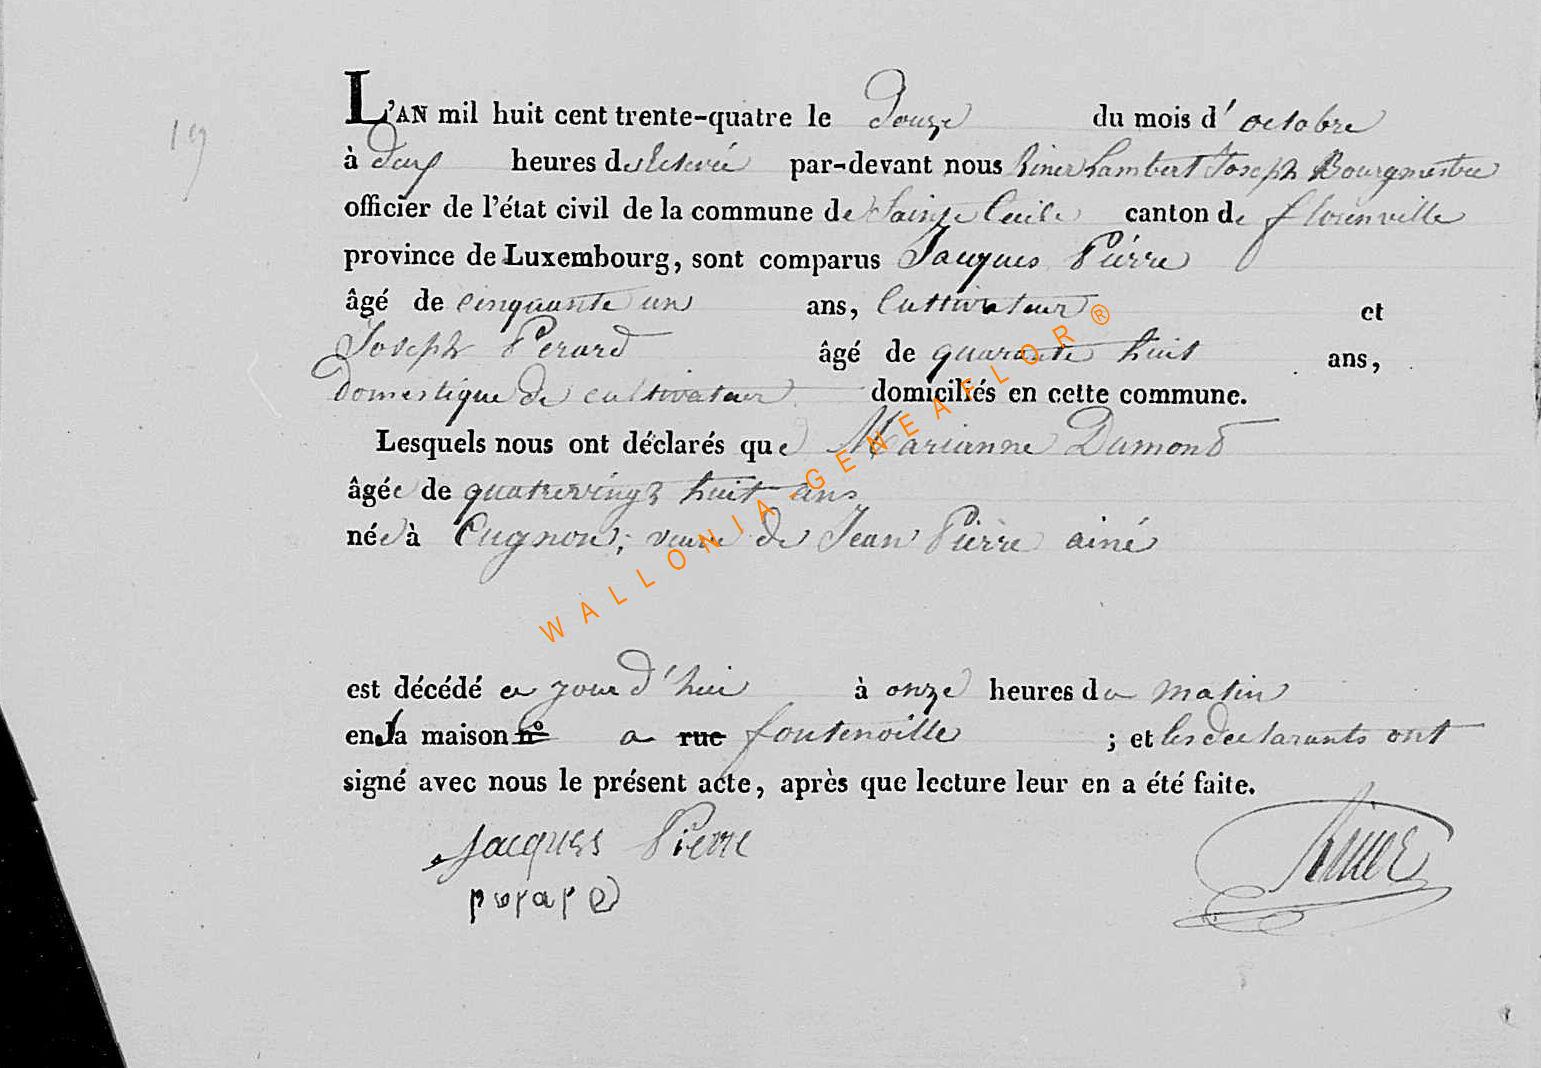 19
L'AN mil huit cent trente-quatre le Douze du mois d'octobre
à Deux heures de Relevée par-devant nous Riner Lambert Joseph Bourgmestre
officier de l'état civil de la commune de Sainte Cecile canton de florenville
province de Luxembourg, sont comparus Jacques Pierre
âgé de cinquante un ans, Cultivateur et
Joseph Perard âgé de quarante huit ans,
Domestique de cultivateur domiciliés en cette commune.
Lesquels nous ont déclarés que Marianne Dumond
âgée de quatrevingt huit ans
née à Cugnon, veuve de Jean Pierre ainé
est décédé ce jour d'hui à onze heures du matin
en la maison n° a rue fontenoille ; et les declarants ont
signé avec nous le présent acte, après que lecture leur en a été faite.
Jacques Pierre
Riner
WALLONIA-GENEAFLOR®